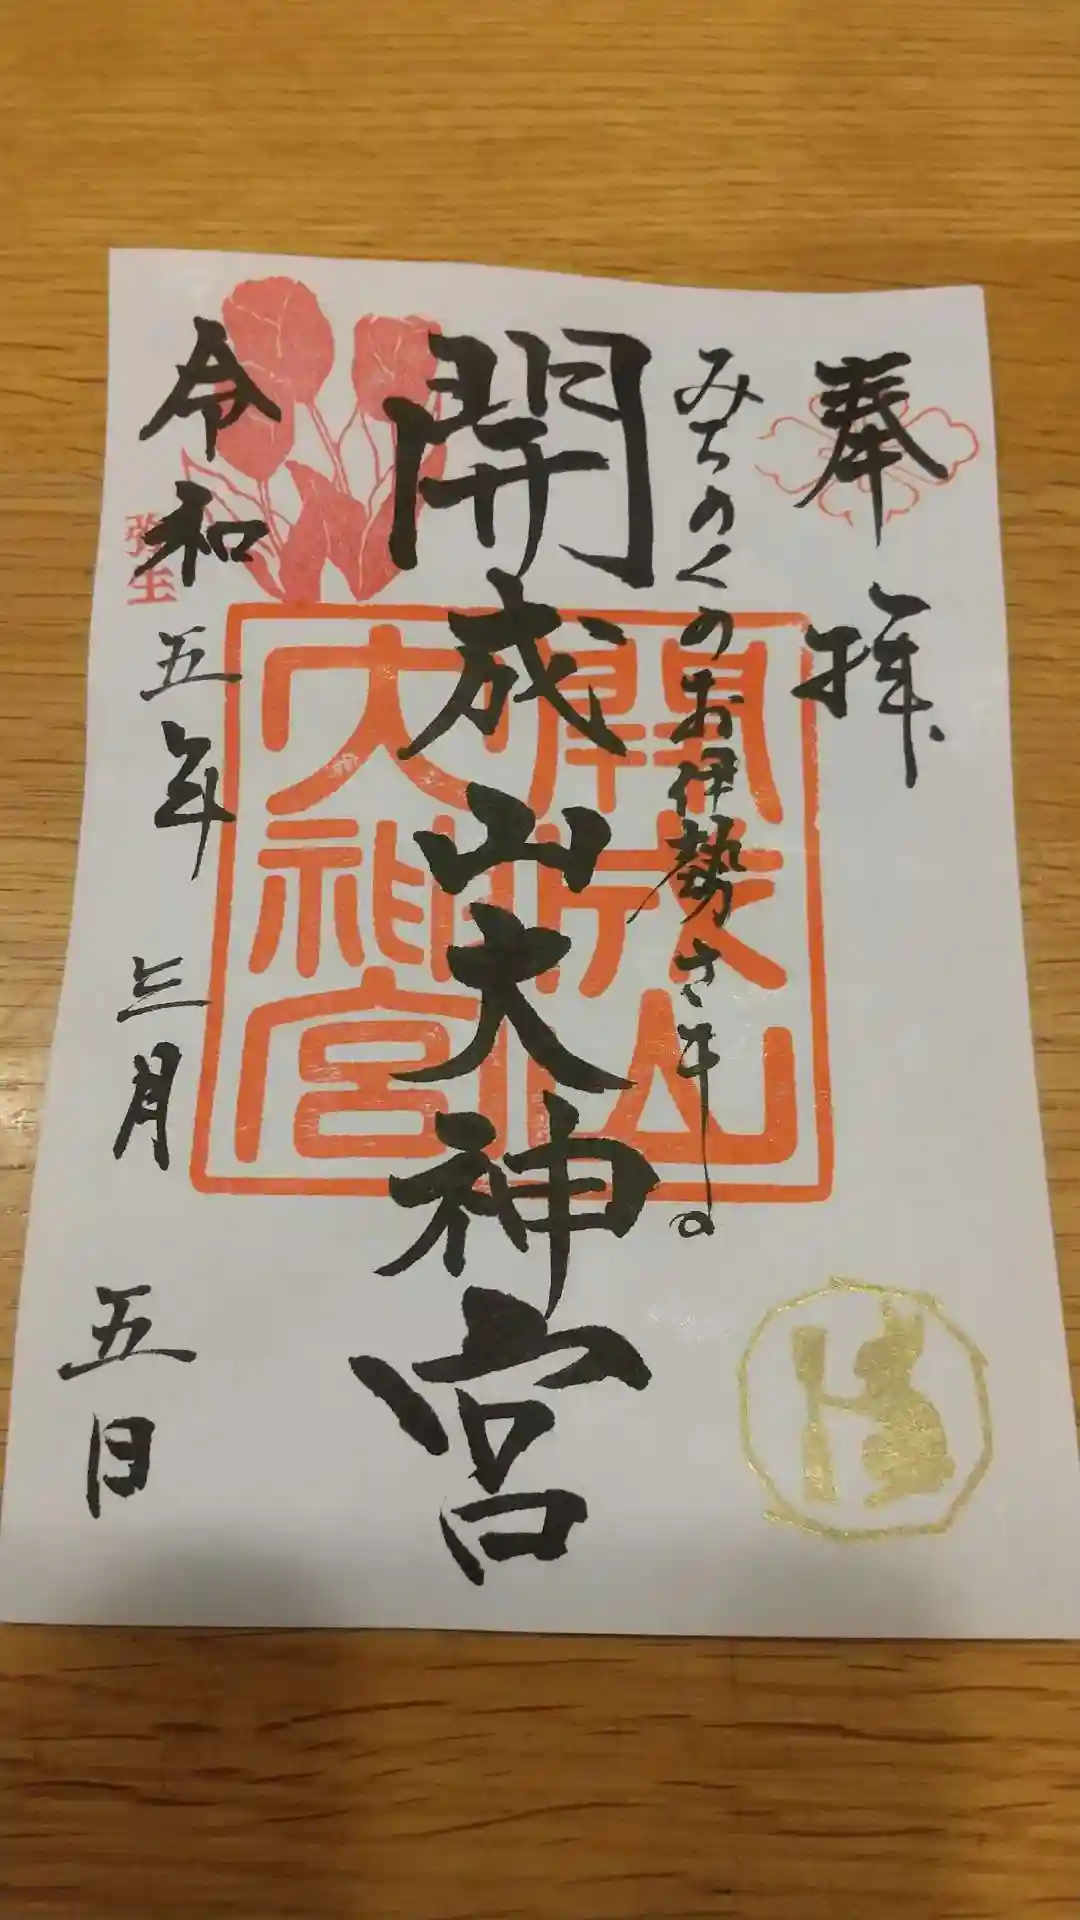 奉拝
みちのくのお伊勢さま。
開成山大神宮
開成山
大神宮
令和五年三月五日
弥生